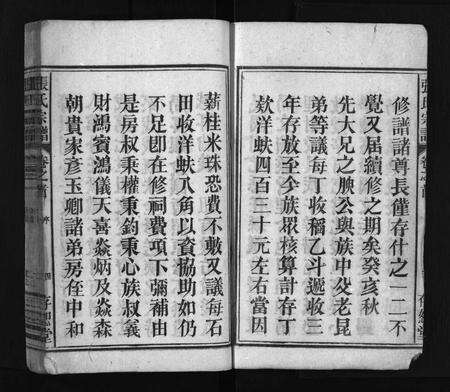 修譜諸尊長僅存什之一二不
覺又屆續修之期矣癸亥秋
先大兄之腴公與族中父老昆
弟等議每丁收稻乙斗遞收三
年存放至今族眾核算計存丁
欵洋蚨四百三十元左右當因
薪桂米珠恐費不敷又議每石
田收洋蚨八角以資協助如仍
不足即在修祠費項下彌補由
是房叔秉權秉鈞秉心族叔義
財鴻賓鴻儀天喜焱炳及焱森
朝貴宋彥玉卿諸弟房侄中和
張氏宗譜
卷之首
序
四
存恕堂